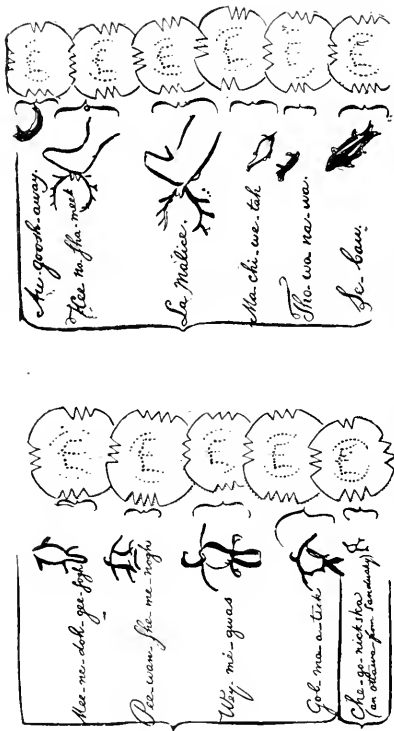 Au-goosh-away.
Kee-no-sha-meek
La Malice.
Ma-chi-we-tah
Tho-wa-na-wa.
Se-caw.
Mee-ne-doh-gee-sogh
Pee-wan-she-me-nogh
Wey-me-gwas
Gob-mo-a-tick
Che-go-nickska
(an Ottawa from Sandusky)